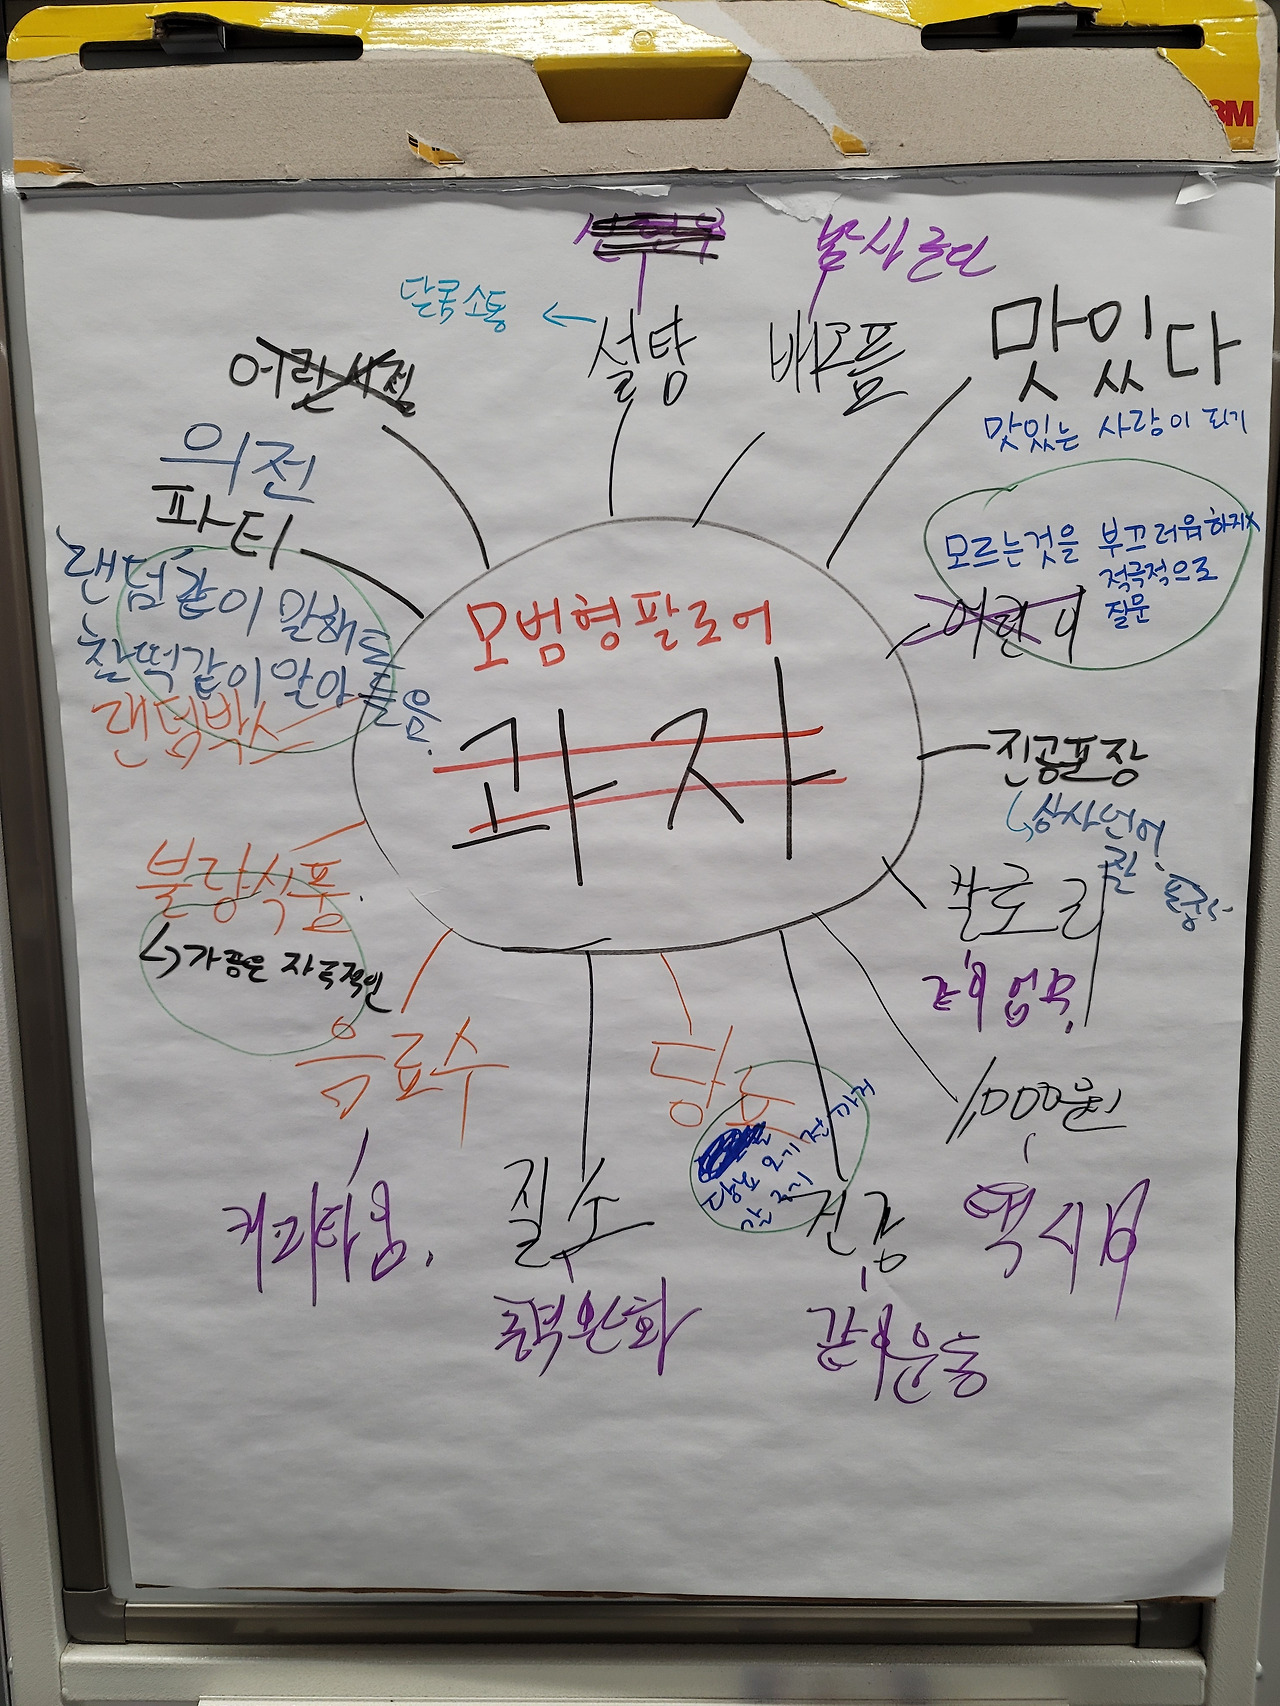 3M
밥시른단
달콤소통 ←
설탕
배고픔
맛있다
맛있는 사람이 되기
어린시절
의전
파티
랜덤같이 말해도
찰떡같이 알아들음.
랜덤박스
모범형팔로어
과자
모르는것을 부끄러워하지X
적극적으로
질문
어린이
진공포장
↳상사언어
칼로리
같이 업무
불량식품.
↳가끔은 자극적인
음료수
커피타임.
질소
당뇨
당뇨 오기 전 까지
건강
같이운동
1,000원
택시비